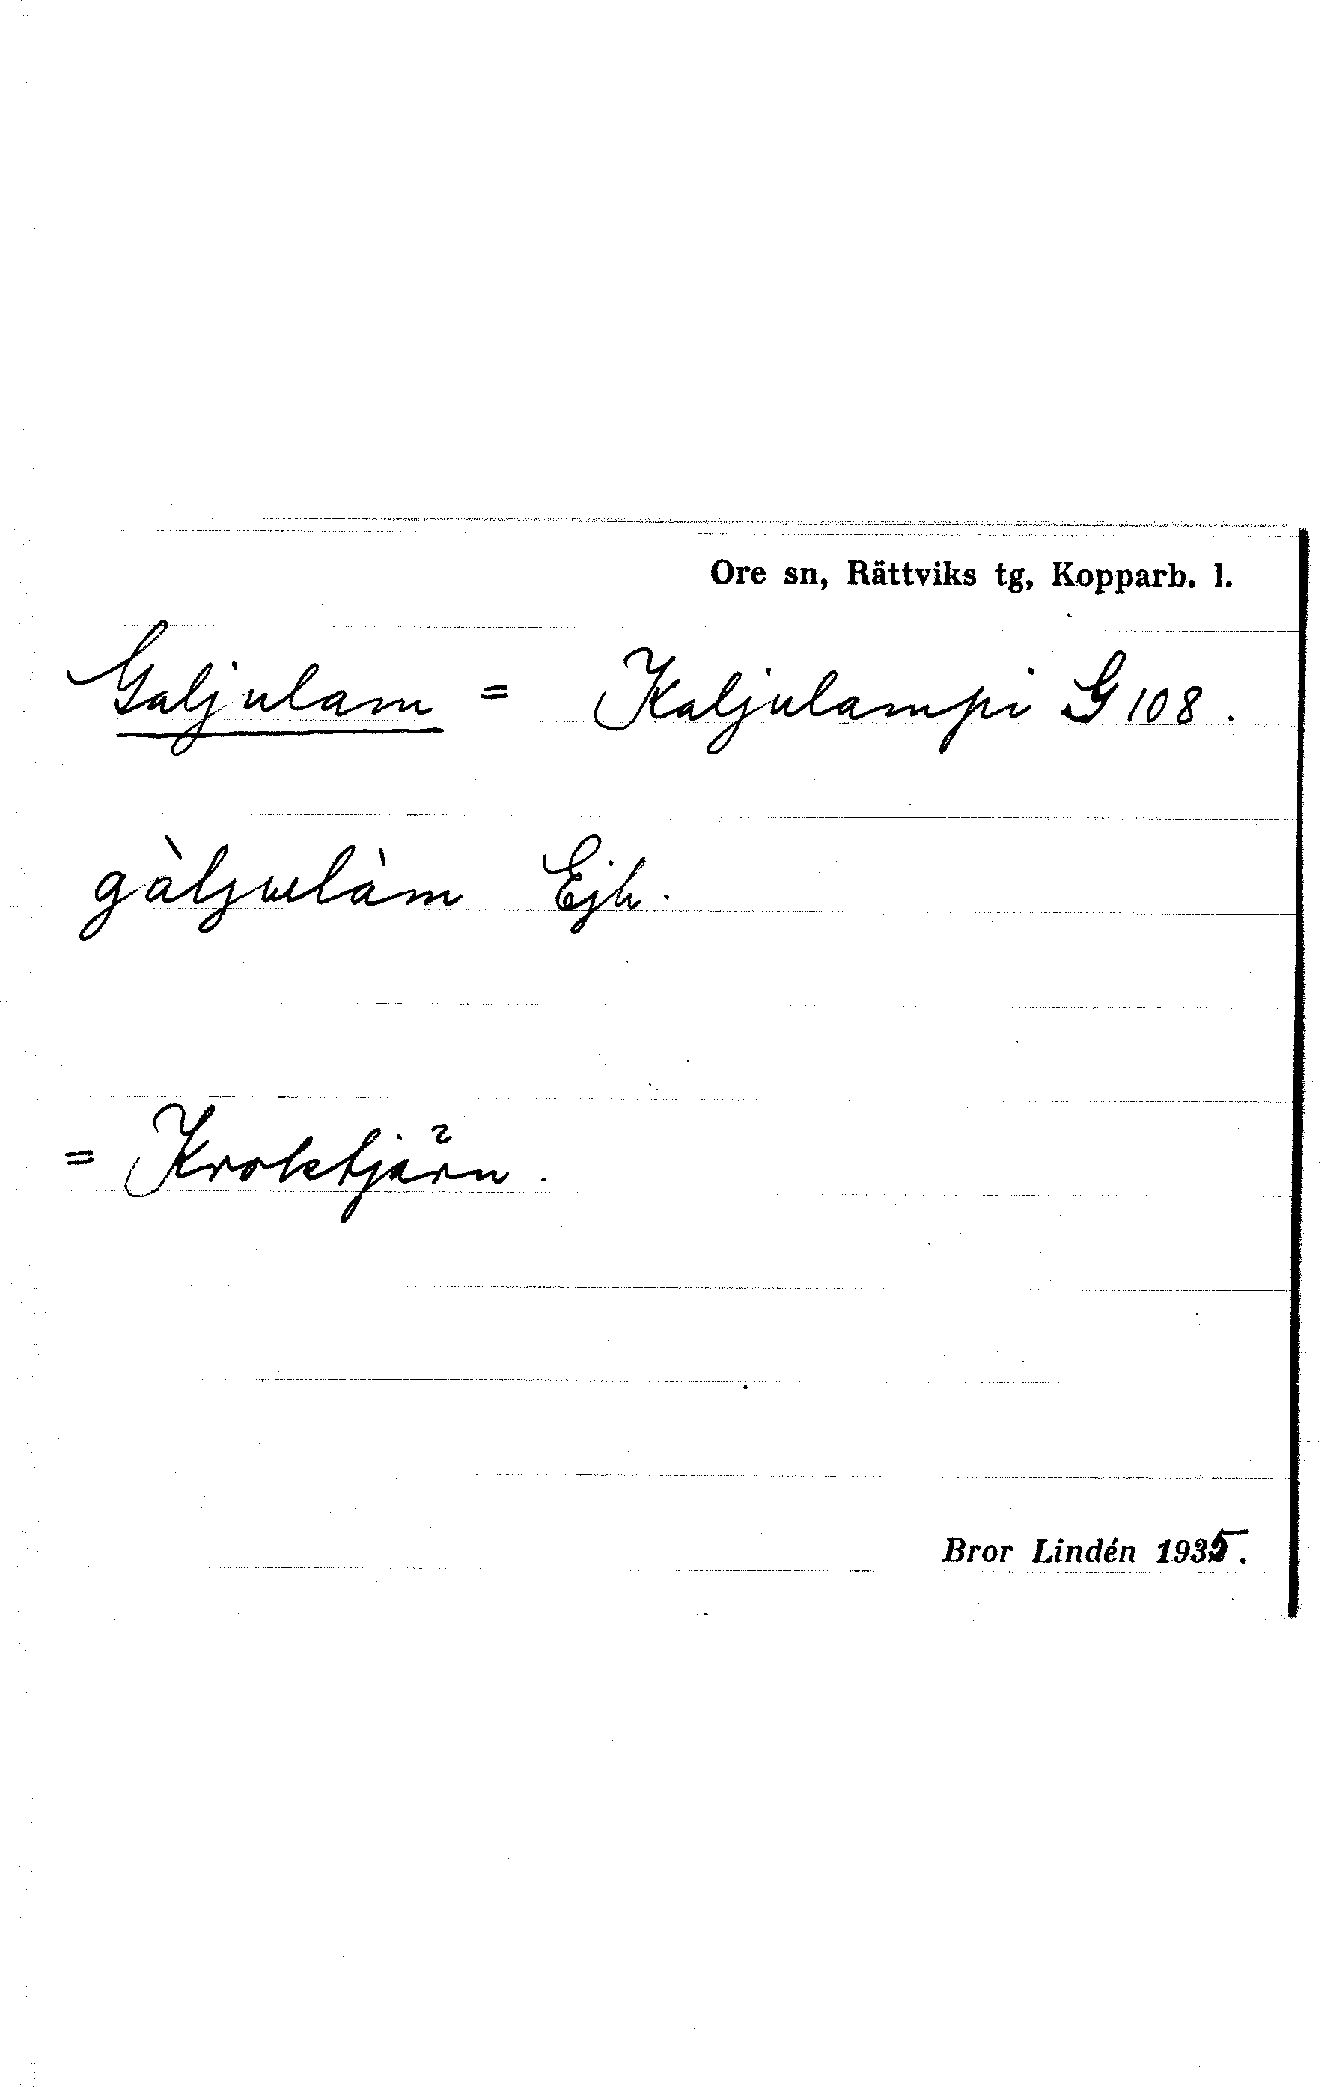 Ore sn, Rättviks tg, Kopparb. l.
Galjulam = Kaljulampi G 108.
gàljulàm Ejh.
= Kroktjärn.
Bror Lindén 1935.